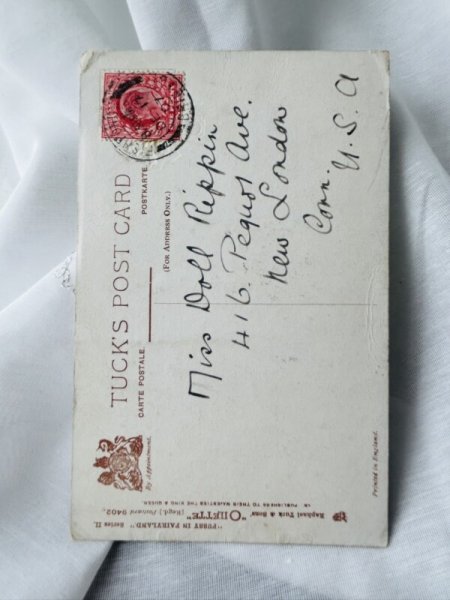 TUCK'S POST CARD
CARTE POSTALE.
POSTKARTE
(FOR ADDRESS ONLY.)
Miss Doll Rippin
416. Pequot Ave.
New London
Conn.
U.S.A
By Appointment.
Raphael Tuck & Sons' "OILETTE" [Regd.] Postcard 9402.
"PUSSY IN FAIRYLAND" Series II.
PUBLISHERS TO THEIR MAJESTIES THE KING & QUEEN
Printed in England.